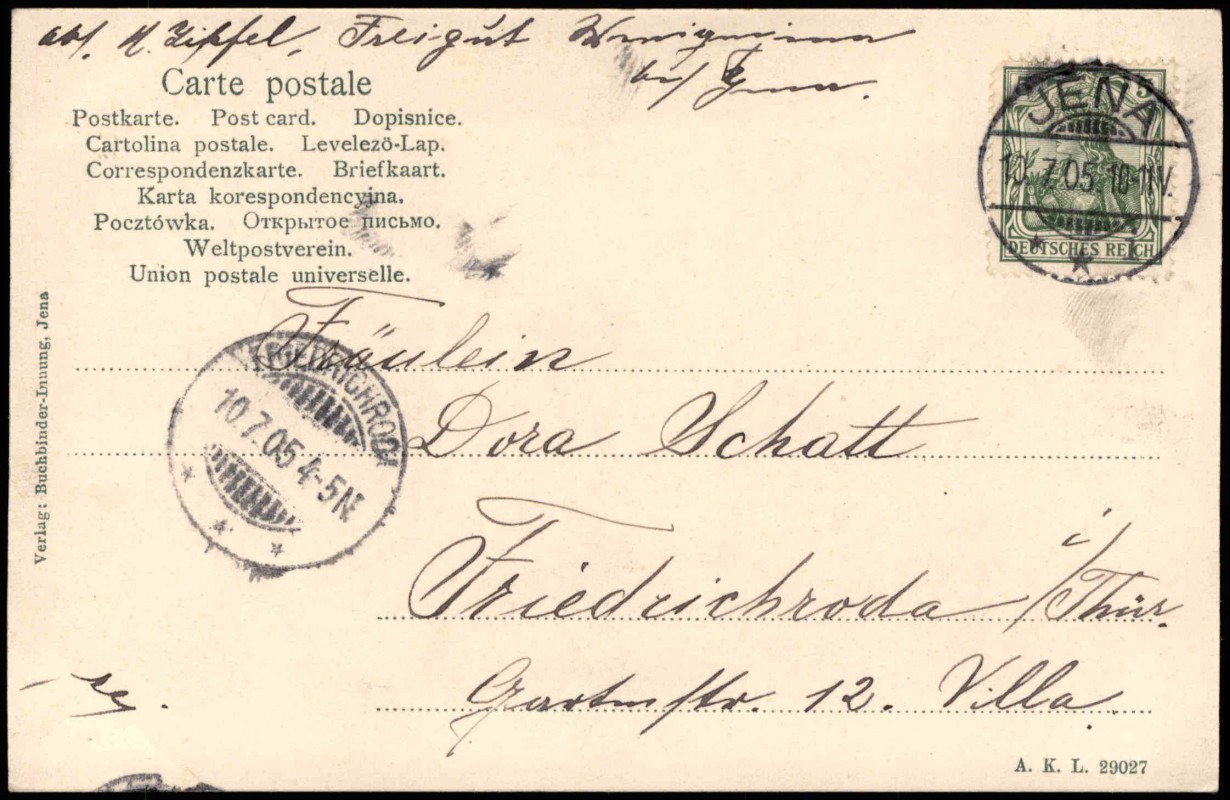 abs. M. Zipfel, Freigut Wenigenjena
bei Jena.
Carte postale
Postkarte. Post card. Dopisnice.
Cartolina postale. Levelezö-Lap.
Correspondenzkarte. Briefkaart.
Karta korespondencyjna.
Pocztówka. Открытое письмо.
Weltpostverein.
Union postale universelle.
JENA
10.7.05.10-11V.
5
DEUTSCHES REICH
Verlag: Buchbinder-Innung, Jena
FRIEDRICHRODA
10.7.05 4-5N.
Fräulein
Dora Schatt
Friedrichroda i/Thür.
Gartenstr. 12. Villa
A. K. L. 29027